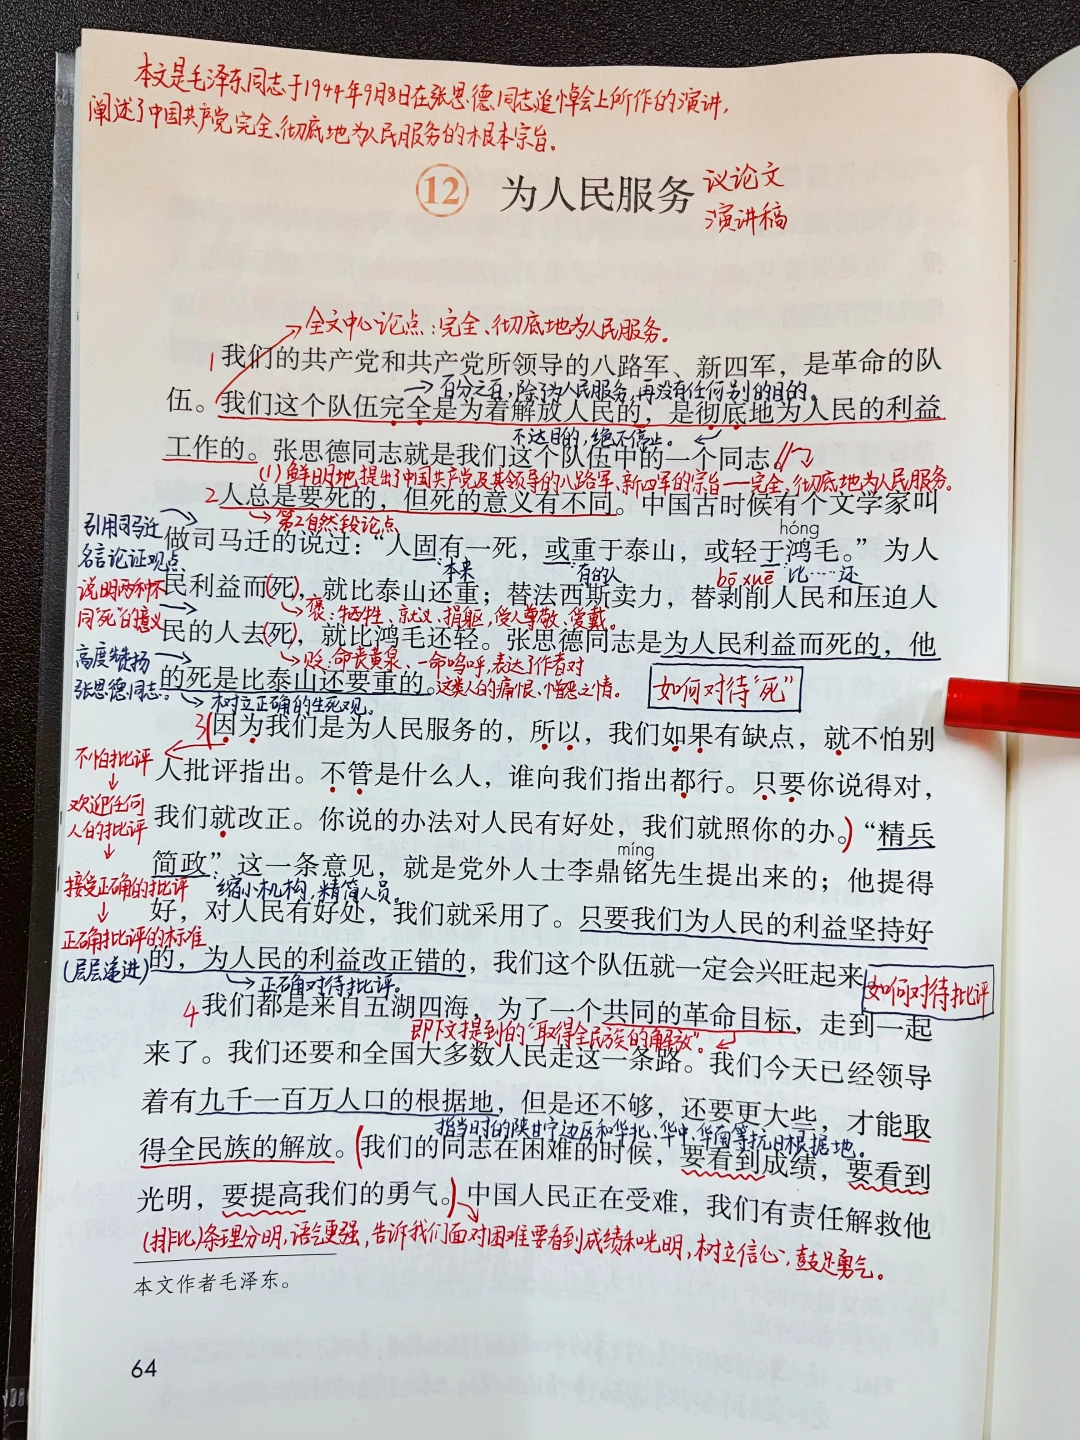 本文是毛泽东同志于1944年9月8日在张思德同志追悼会上所作的演讲,
阐述了中国共产党完全、彻底地为人民服务的根本宗旨。
12 为人民服务
议论文
演讲稿
全文中心论点:完全、彻底地为人民服务。
1我们的共产党和共产党所领导的八路军、新四军，是革命的队
百分之百,除了为人民服务,再没有任何别的目的。
伍。我们这个队伍完全是为着解放人民的，是彻底地为人民的利益
不达目的,绝不停止。
工作的。张思德同志就是我们这个队伍中的一个同志。
(1)鲜明地提出了中国共产党及其领导的八路军、新四军的宗旨——完全、彻底地为人民服务。
2人总是要死的，但死的意义有不同。中国古时候有个文学家叫
第2自然段论点
hóng
引用司马迁
名言论证观点
做司马迁的说过：“人固有一死，或重于泰山，或轻于鸿毛。”为人
本来
有的人
bō xuē
比……还
说明两种不
同“死”的意义
民利益而(死)，就比泰山还重；替法西斯卖力，替剥削人民和压迫人
褒:牺牲、就义、捐躯,受人尊敬、爱戴。
民的人去(死)，就比鸿毛还轻。张思德同志是为人民利益而死的，他
贬:命丧黄泉、一命呜呼,表达了作者对
这类人的痛恨、憎恶之情。
高度赞扬
张思德同志。
的死是比泰山还要重的。
如何对待“死”
树立正确的生死观。
3(因为我们是为人民服务的，所以，我们如果有缺点，就不怕别
不怕批评
人批评指出。不管是什么人，谁向我们指出都行。只要你说得对，
欢迎任何
人的批评
我们就改正。你说的办法对人民有好处，我们就照你的办。)“精兵
míng
简政”这一条意见，就是党外人士李鼎铭先生提出来的；他提得
接受正确的批评
缩小机构,精简人员。
好，对人民有好处，我们就采用了。只要我们为人民的利益坚持好
正确批评的标准
(层层递进)
的，为人民的利益改正错的，我们这个队伍就一定会兴旺起来
正确对待批评。
如何对待批评
4我们都是来自五湖四海，为了一个共同的革命目标，走到一起
即下文提到的“取得全民族的解放”。
来了。我们还要和全国大多数人民走这一条路。我们今天已经领导
着有九千一百万人口的根据地，但是还不够，还要更大些，才能取
指当时的陕甘宁边区和华北、华中、华南等抗日根据地。
得全民族的解放。(我们的同志在困难的时候，要看到成绩，要看到
光明，要提高我们的勇气。)中国人民正在受难，我们有责任解救他
(排比)条理分明,语气更强,告诉我们面对困难要看到成绩和光明,树立信心,鼓足勇气。
本文作者毛泽东。
64